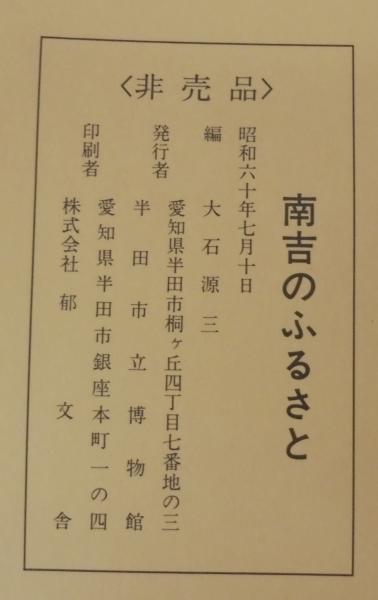 〈非売品〉
南吉のふるさと
昭和六十年七月十日
編 大石源三
発行者 愛知県半田市桐ヶ丘四丁目七番地の三
半田市立博物館
印刷者 愛知県半田市銀座本町一の四
株式会社 郁文舎